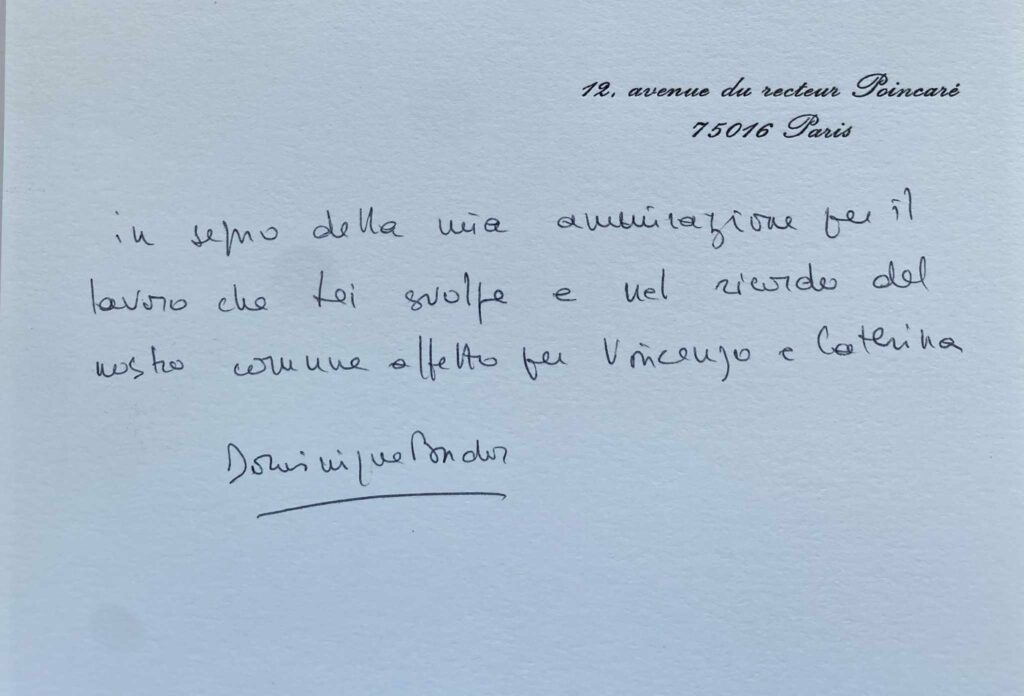 12, avenue du recteur Poincaré
75016 Paris
in segno della mia ammirazione per il
lavoro che Lei svolge e nel ricordo del
nostro comune affetto per Vincenzo e Caterina
Dominique Budor